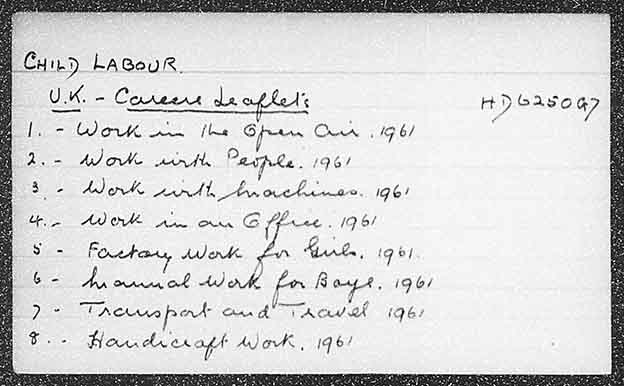 CHILD LABOUR.
U.K. - Careers Leaflets HD6250G7
1. - Work in the Open Air. 1961
2. - Work with People. 1961
3 - Work with Machines. 1961
4. - Work in an Office. 1961
5 - Factory Work for Girls. 1961.
6 - Manual Work for Boys. 1961
7 - Transport and Travel 1961
8. - Handicraft Work. 1961